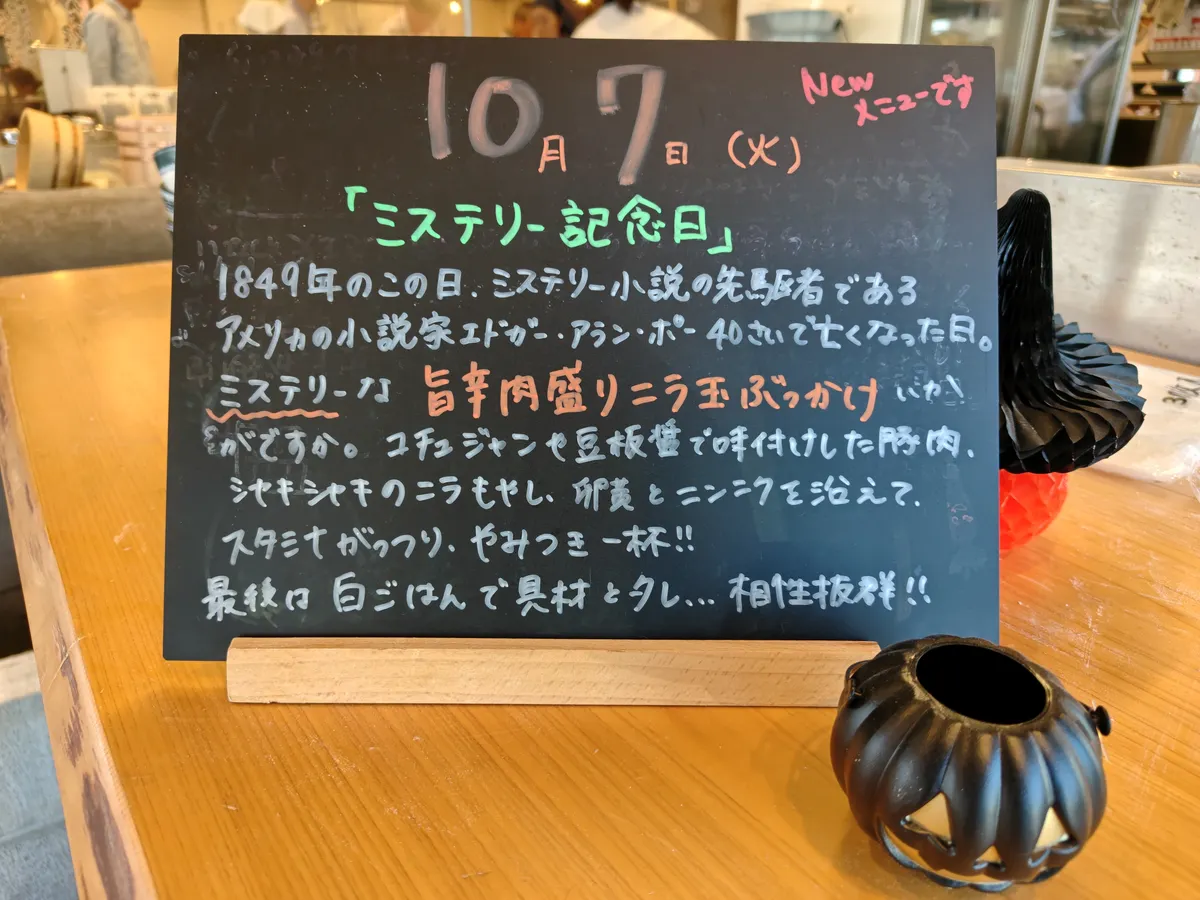 10月7日(火)
Newメニューです
「ミステリー記念日」
1849年のこの日、ミステリー小説の先駆者である
アメリカの小説家エドガー・アラン・ポー40さいで亡くなった日。
ミステリーな 旨辛肉盛りニラ玉ぶっかけ いか
がですか。コチュジャンや豆板醤で味付けした豚肉、
シャキシャキのニラもやし、卵黄とニンニクを沿えて、
スタミナがっつり、やみつき一杯!!
最後は白ごはんで具材とタレ...相性抜群!!